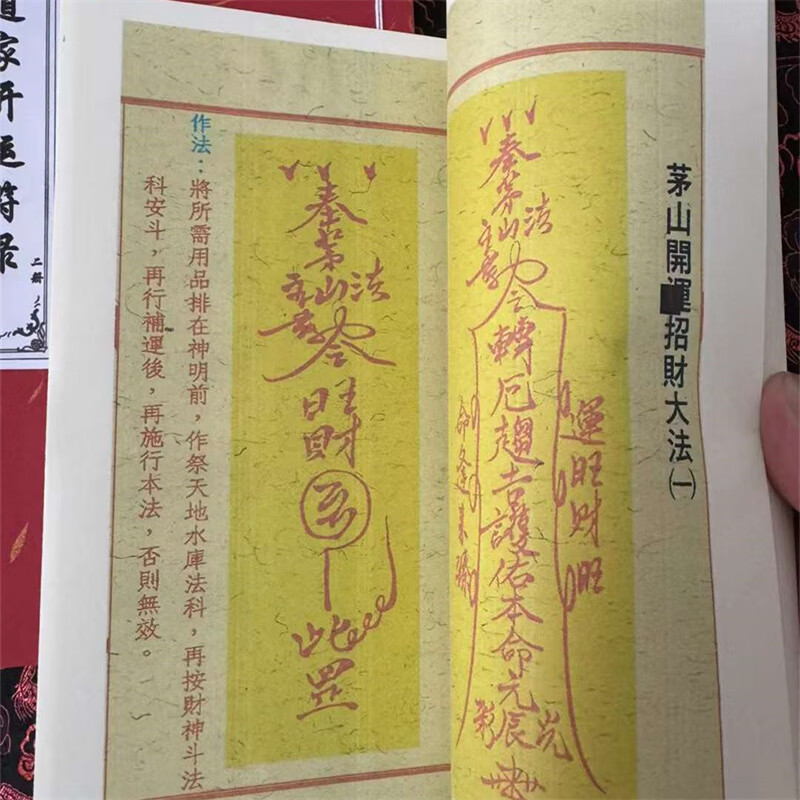 茅山開運招財大法㈠
奉茅山法
令
轉厄趨吉護佑本命元辰光彩
運旺財旺
奉茅山法
令
旺財
此罡
作法：將所需用品排在神明前，作祭天地水庫法科，再按財神斗法
科安斗，再行補運後，再施行本法，否則無效。
道家开运符录
二册之